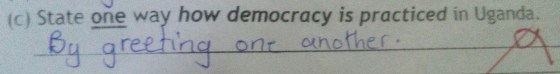 (c) State one way how democracy is practiced in Uganda.
By greeting one another.